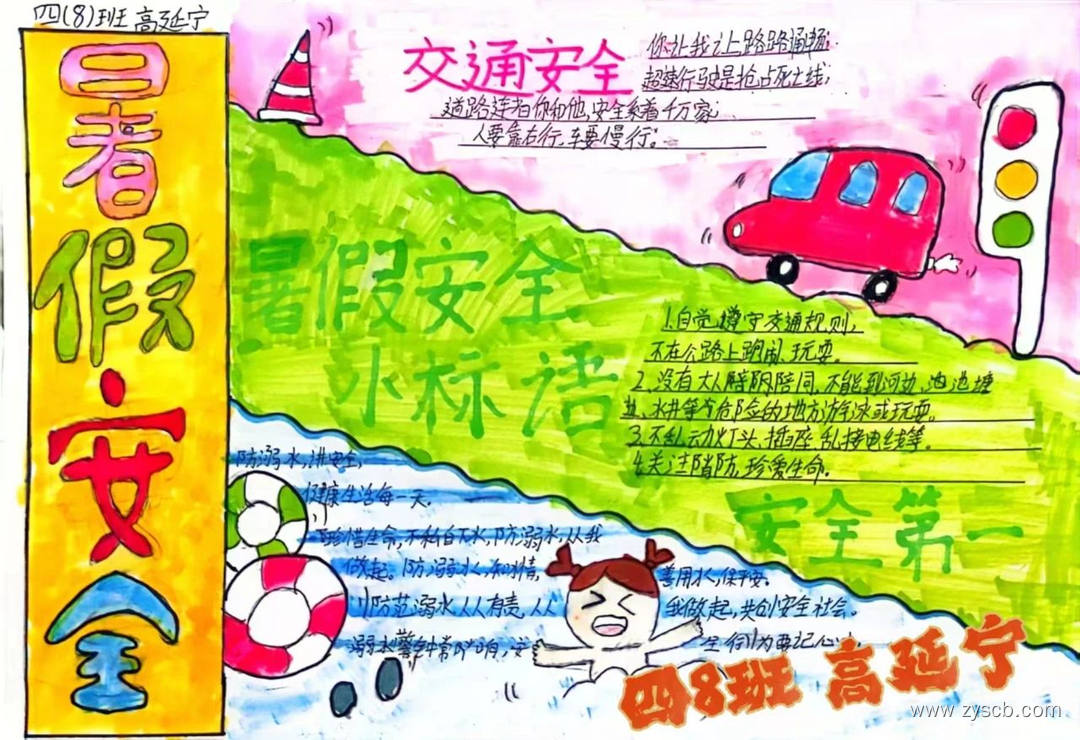 四(8)班 高延宁
暑假安全
交通安全
你让我让上路路通畅;
超速行驶是抢占死亡线;
道路连着你和他,安全系着千万家;
人要靠右行,车要慢行。
暑假安全
小标语
1.自觉遵守交通规则,
不在公路上跑闹、玩耍。
2、没有大人陪同,不能到河边、池边塘
边、水井等有危险的地方游泳或玩耍。
3.不乱动灯头、插座,乱接电线等。
4.关注消防,珍爱生命。
安全第一
防溺水,讲安全,
健康生活每一天。
珍惜生命,不私自下水,防溺水,从我
做起。防溺水,知水情,善用水,保平安。
防范溺水人人有责,人人我做起,共创安全社会。
溺水警钟常鸣响,安全行为要记心
四8班 高延宁
www.zyscb.com